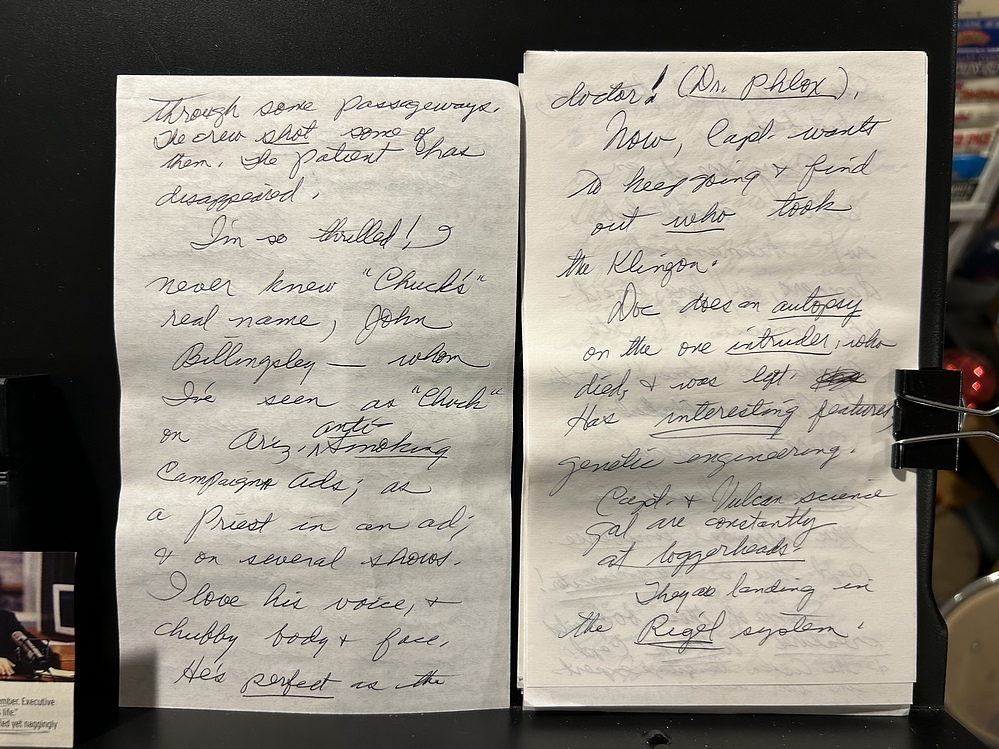 through some passageways.
The crew shot some of
them. The patient has
disappeared.
I'm so thrilled! I
never knew "Chuck's"
real name, John
Billingsley — whom
I've seen as "Chuck"
on Ariz. anti-smoking
Campaign Ads; as
a Priest in an ad;
& on several shows.
I love his voice, &
chubby body & face.
He's perfect as the
doctor! (Dr. Phlox).
Now, Capt. wants
to keep going & find
out who took
the Klingon.
Doc does an autopsy
on the one intruder, who
died, & was left.
Has interesting features,
genetic engineering.
Capt. & Vulcan science
gal are constantly
at loggerheads.
They're landing in
the Rigel system.
ember. Executive
life."
ied yet naggingly